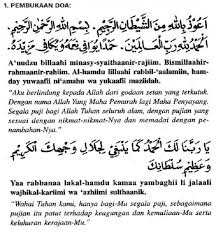 1. PEMBUKAAN DOA:
اَعُوْذُ بِاللهِ مِنَ الشَّيْطَانِ الرَّجِيْمِ. بِسْمِ اللهِ الرَّحْمٰنِ الرَّحِيْمِ.
اَلْحَمْدُ لِلّٰهِ رَبِّ الْعَالَمِيْنَ. حَمْدًا يُوَافِيْ نِعَمَهُ وَيُكَافِئُ مَزِيْدَهُ.
A'uudzu billaahi minasy-syaithaanir-rajiim. Bismillaahir-
rahmaanir-rahiim. Al-hamdu lillaahi rabbil-'aalamiin, ham-
day yuwaafii ni'amahu wa yukaafii maziidah.
"Aku berlindung kepada Allah dari godaan setan yang terkutuk.
Dengan nama Allah Yang Maha Pemurah lagi Maha Penyayang.
Segala puji bagi Allah Tuhan seluruh alam, dengan pujian yang
sesuai dengan nikmat-nikmat-Nya dan memadai dengan pe-
nambahan-Nya."
يَا رَبَّنَا لَكَ الْحَمْدُ كَمَا يَنْبَغِيْ لِجَلَالِ وَجْهِكَ الْكَرِيْمِ
وَعَظِيْمِ سُلْطَانِكَ
Yaa rabbanaa lakal-hamdu kamaa yambaghii li jalaali
wajhikal-kariimi wa 'azhiimi sulthaanik.
"Wahai Tuhan kami, hanya bagi-Mu segala puji, sebagaimana
pujian itu patut terhadap keagungan dan kemuliaan-Mu serta
keluhuran kerajaan-Mu."